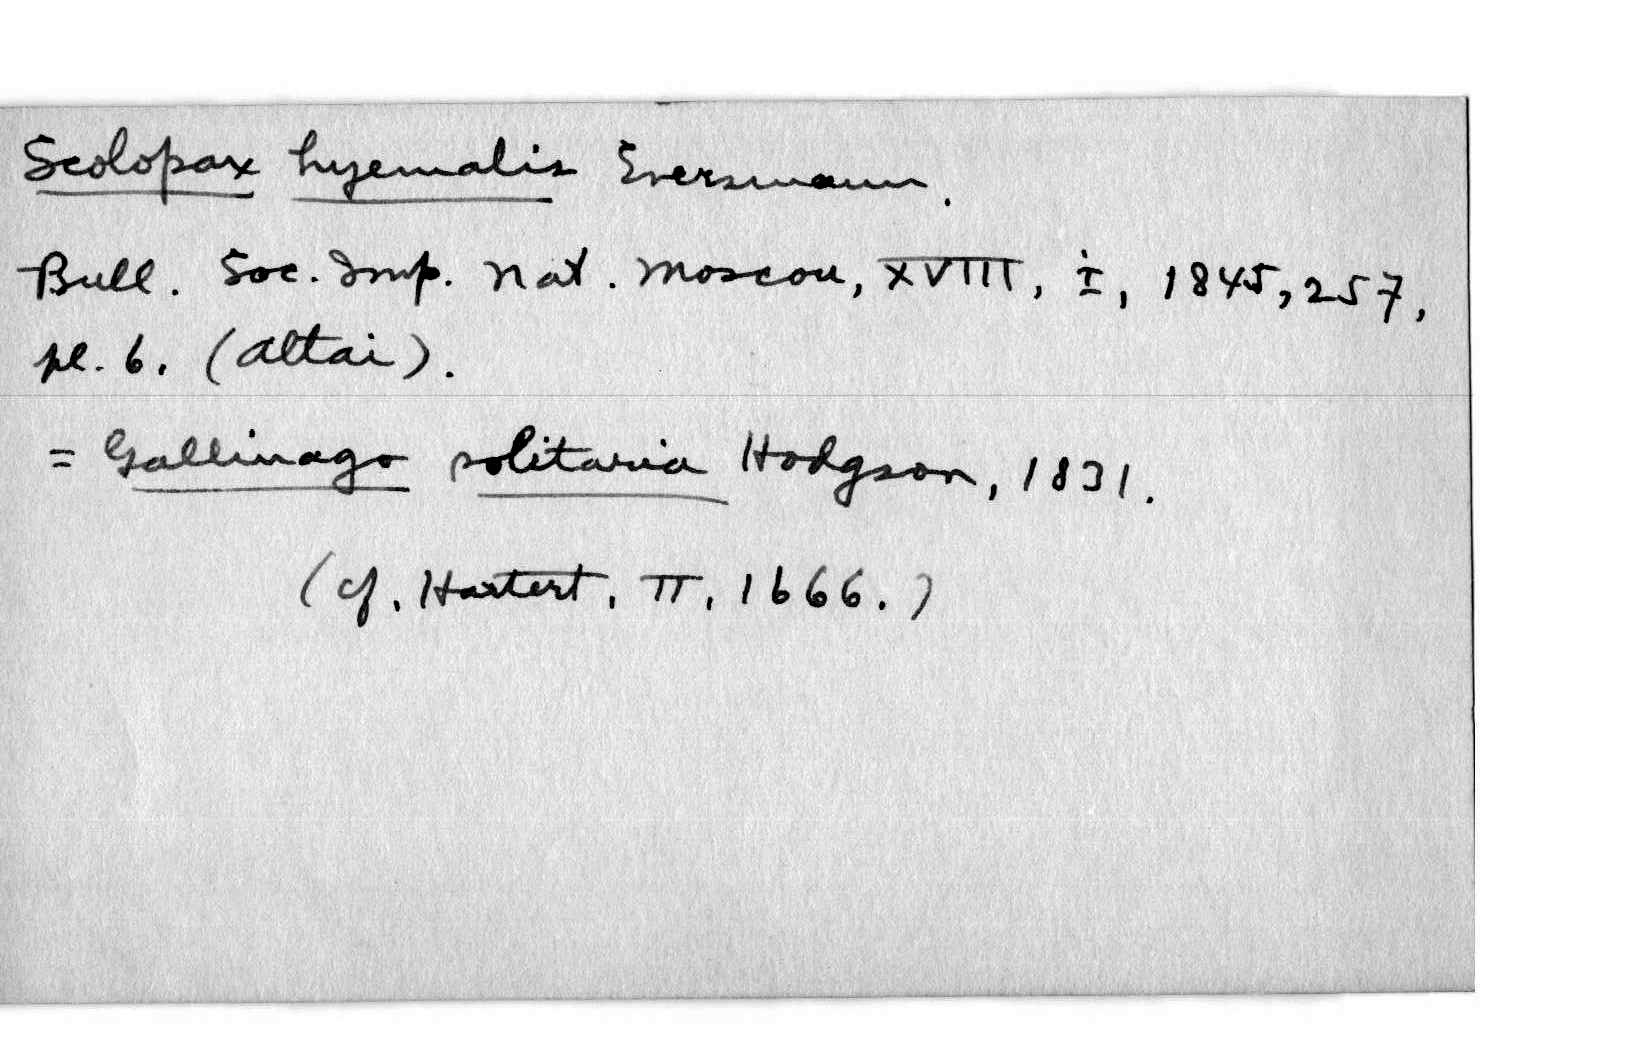 Scolopax hyemalis Eversmann.
Bull. Soc. Imp. Nat. Moscou, XVIII, i, 1845, 257,
pl. 6. (Altai).
= Gallinago solitaria Hodgson, 1831.
(cf. Hartert, II, 1666.)